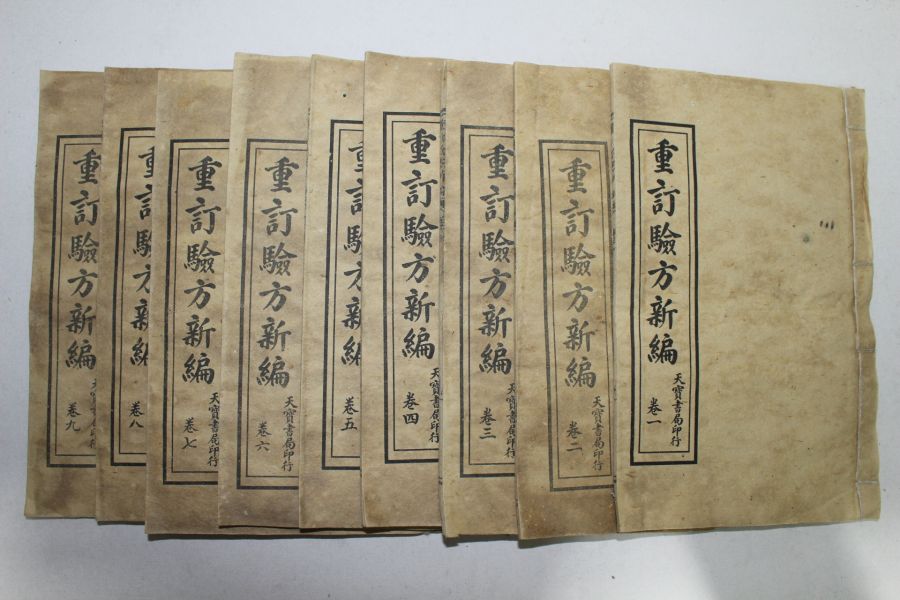 重訂驗方新編
天寶書局印行
卷一
重訂驗方新編
天寶書局印行
卷二
重訂驗方新編
天寶書局印行
卷三
重訂驗方新編
天寶書局印行
卷四
重訂驗方新編
卷五
重訂驗方新編
天寶書局印行
卷六
重訂驗方新編
天寶書局印行
卷七
重訂驗方新編
卷八
重訂驗方新編
天寶書局印行
卷九